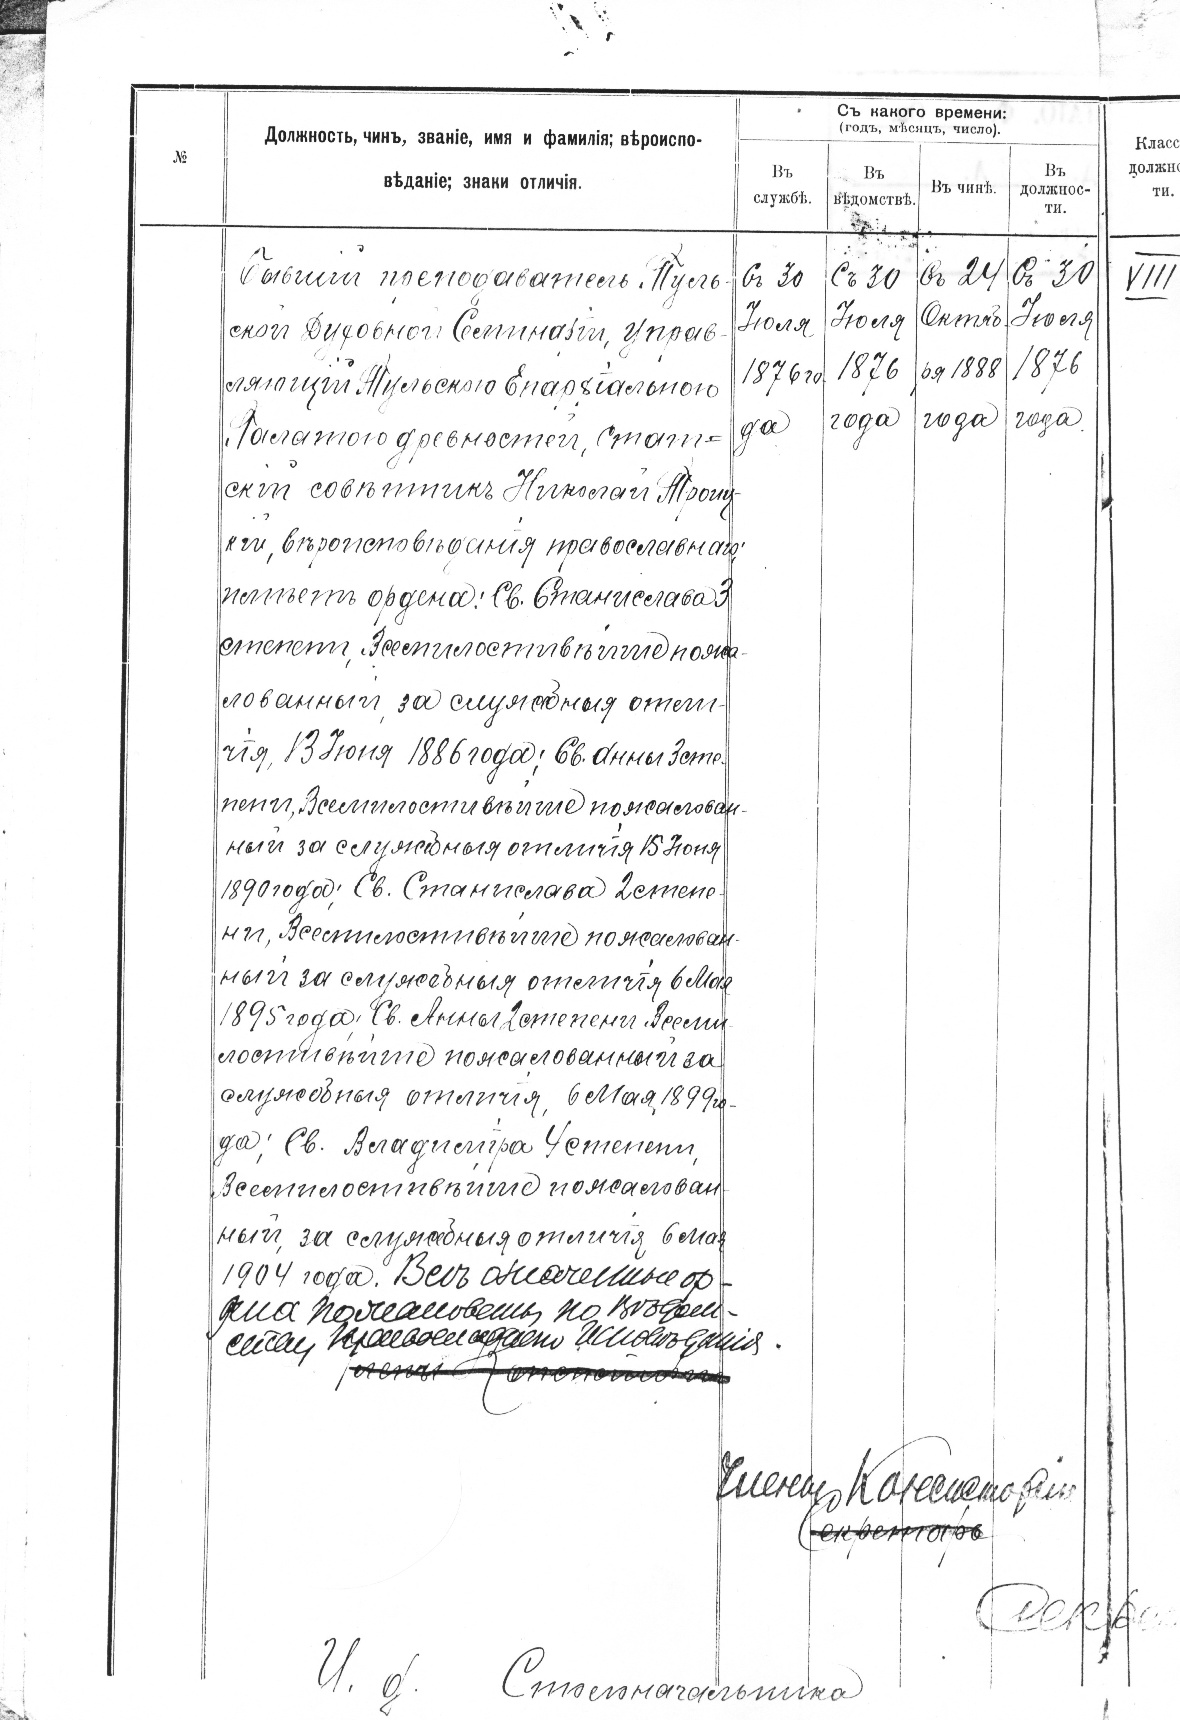 №
Должность, чинъ, званіе, имя и фамилія; вѣроиспо-
вѣданіе; знаки отличія.
Съ какого времени:
(годъ, мѣсяцъ, число).
Въ
службѣ.
Въ
вѣдомствѣ.
Въ чинѣ.
Въ
должнос-
ти.
Класс
должно
ти.
Бывшій преподаватель Туль-
ской Духовной Семинаріи, управ-
ляющій Тульскою Епархіальною
Палатою древностей, Стат-
скій совѣтникъ Николай Троиц-
кій, вѣроисповѣданія православнаго;
имѣетъ ордена: Св. Станислава 3
степени, Всемилостивѣйше пожа-
лованный, за служебныя отли-
чія, 13 Іюня 1886 года; Св. Анны 3 сте-
пени, Всемилостивѣйше пожалован-
ный за служебныя отличія 15 Іюня
1890 года; Св. Станислава 2 степе-
ни, Всемилостивѣйше пожалован-
ный за служебныя отличія 6 Мая
1895 года; Св. Анны 2 степени Всеми-
лостивѣйше пожалованный за
служебныя отличія, 6 Мая 1899 го-
да; Св. Владиміра 4 степени,
Всемилостивѣйше пожалован-
ный, за служебныя отличія 6 Мая
1904 года. Всѣ означенные ор-
дена пожалованы по Вѣдом-
ству Православнаго Исповѣданія.
Съ 30
Іюля
1876 го
да
Съ 30
Іюля
1876
года
Съ 24
Октяб-
ря 1888
года
Съ 30
Іюля
1876
года.
VIII
Членъ Консисторіи
Секретарь
Секре
И. д. Столоначальника